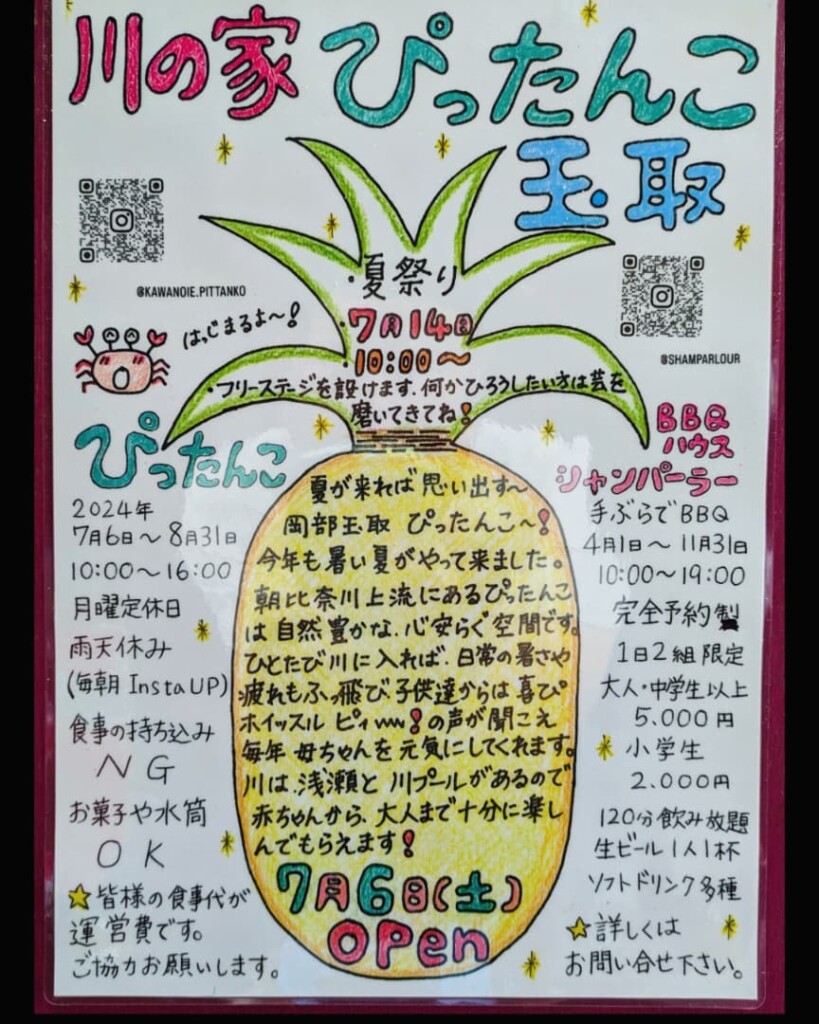 川の家 ぴったんこ
玉取
@KAWANOIE.PITTANKO
@SHAMPARLOUR
はっじまるよ〜!
・夏祭り
・7月14日
10:00〜
・フリーステージを設けます.何かひろうしたい方は芸を
磨いてきてね!
ぴったんこ
2024年
7月6日〜8月31日
10:00〜16:00
月曜定休日
雨天休み
(毎朝 Insta UP)
食事の持ち込み
NG
お菓子や水筒
OK
☆皆様の食事代が
運営費です。
ご協力お願いします。
夏が来れば思い出す〜
岡部玉取 ぴったんこ〜!
今年も暑い夏がやって来ました。
朝比奈川上流にあるぴったんこ
は自然豊かな.心安らぐ空間です。
ひとたび川に入れば.日常の暑さや
疲れもふっ飛び.子供達からは喜び
ホイッスル ピィww!の声が聞こえ
毎年 母ちゃんを元気にしてくれます。
川は.浅瀬と川プールがあるので
赤ちゃんから.大人まで十分に楽し
んでもらえます!
7月6日(土)
OPen
BBQ
ハウス
シャンパーラー
手ぶらでBBQ
4月1日〜11月31日
10:00〜19:00
完全予約制
1日2組限定
大人・中学生以上
5.000円
小学生
2.000円
120分飲み放題
生ビール1人1杯
ソフトドリンク多種
☆詳しくは
お問い合せ下さい。